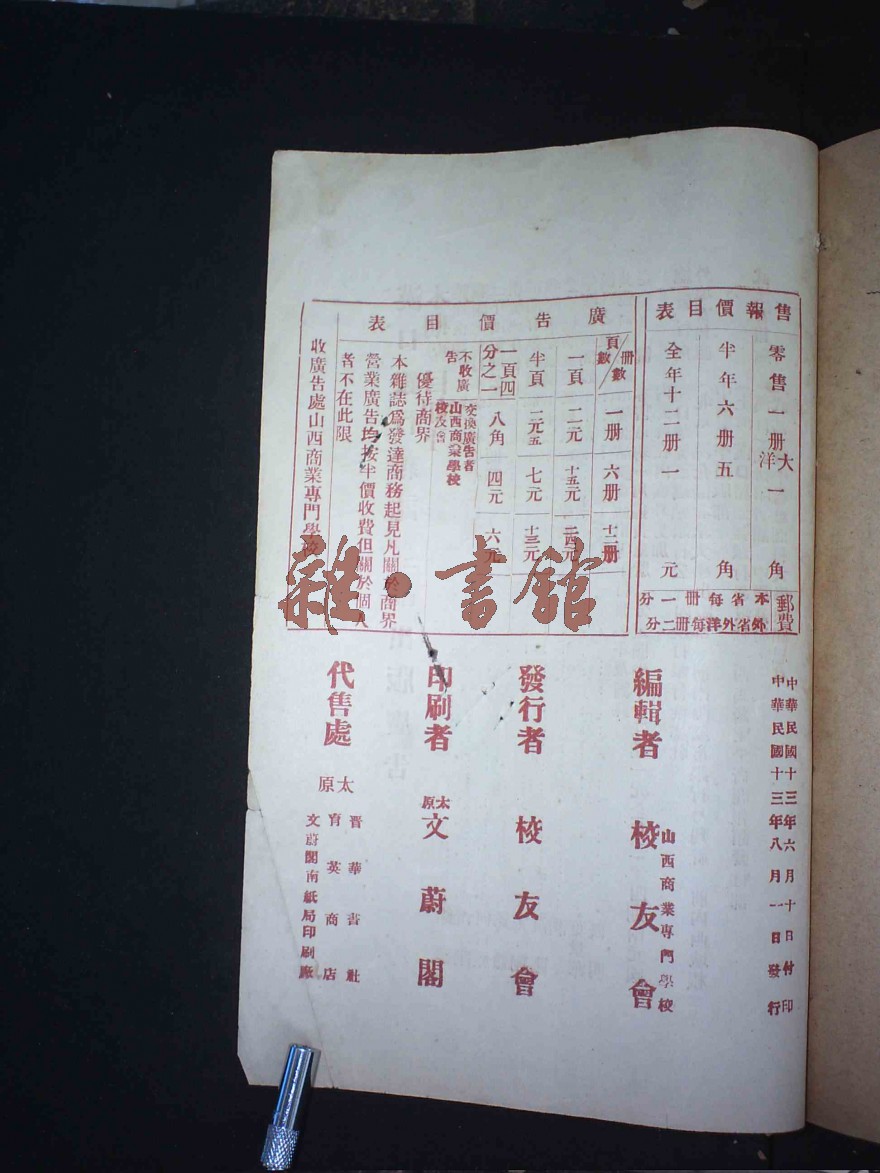 售報價目表
零售一册大洋一角
半年六册五角
全年十二册一元
郵費
本省每册一分
外省外洋每册二分
廣告價目表
頁數/册數
一册
六册
十二册
一頁
二元
十五元
二四元
半頁
一元五
七元
十三元
一頁四分之一
八角
四元
六元
不收廣告
交換廣告者
山西商業學校
校友會
優待商界
本雜誌爲發達商務起見凡關於商界
營業廣告均按半價收費但關於個人
者不在此限
收廣告處山西商業專門學校
雜·書館
中華民國十三年六月十日付印
中華民國十三年八月一日發行
編輯者
山西商業專門學校
校友會
發行者
校友會
印刷者
太原
文蔚閣
代售處
太原
晋華書社
育英商店
文蔚閣南紙局印刷廠